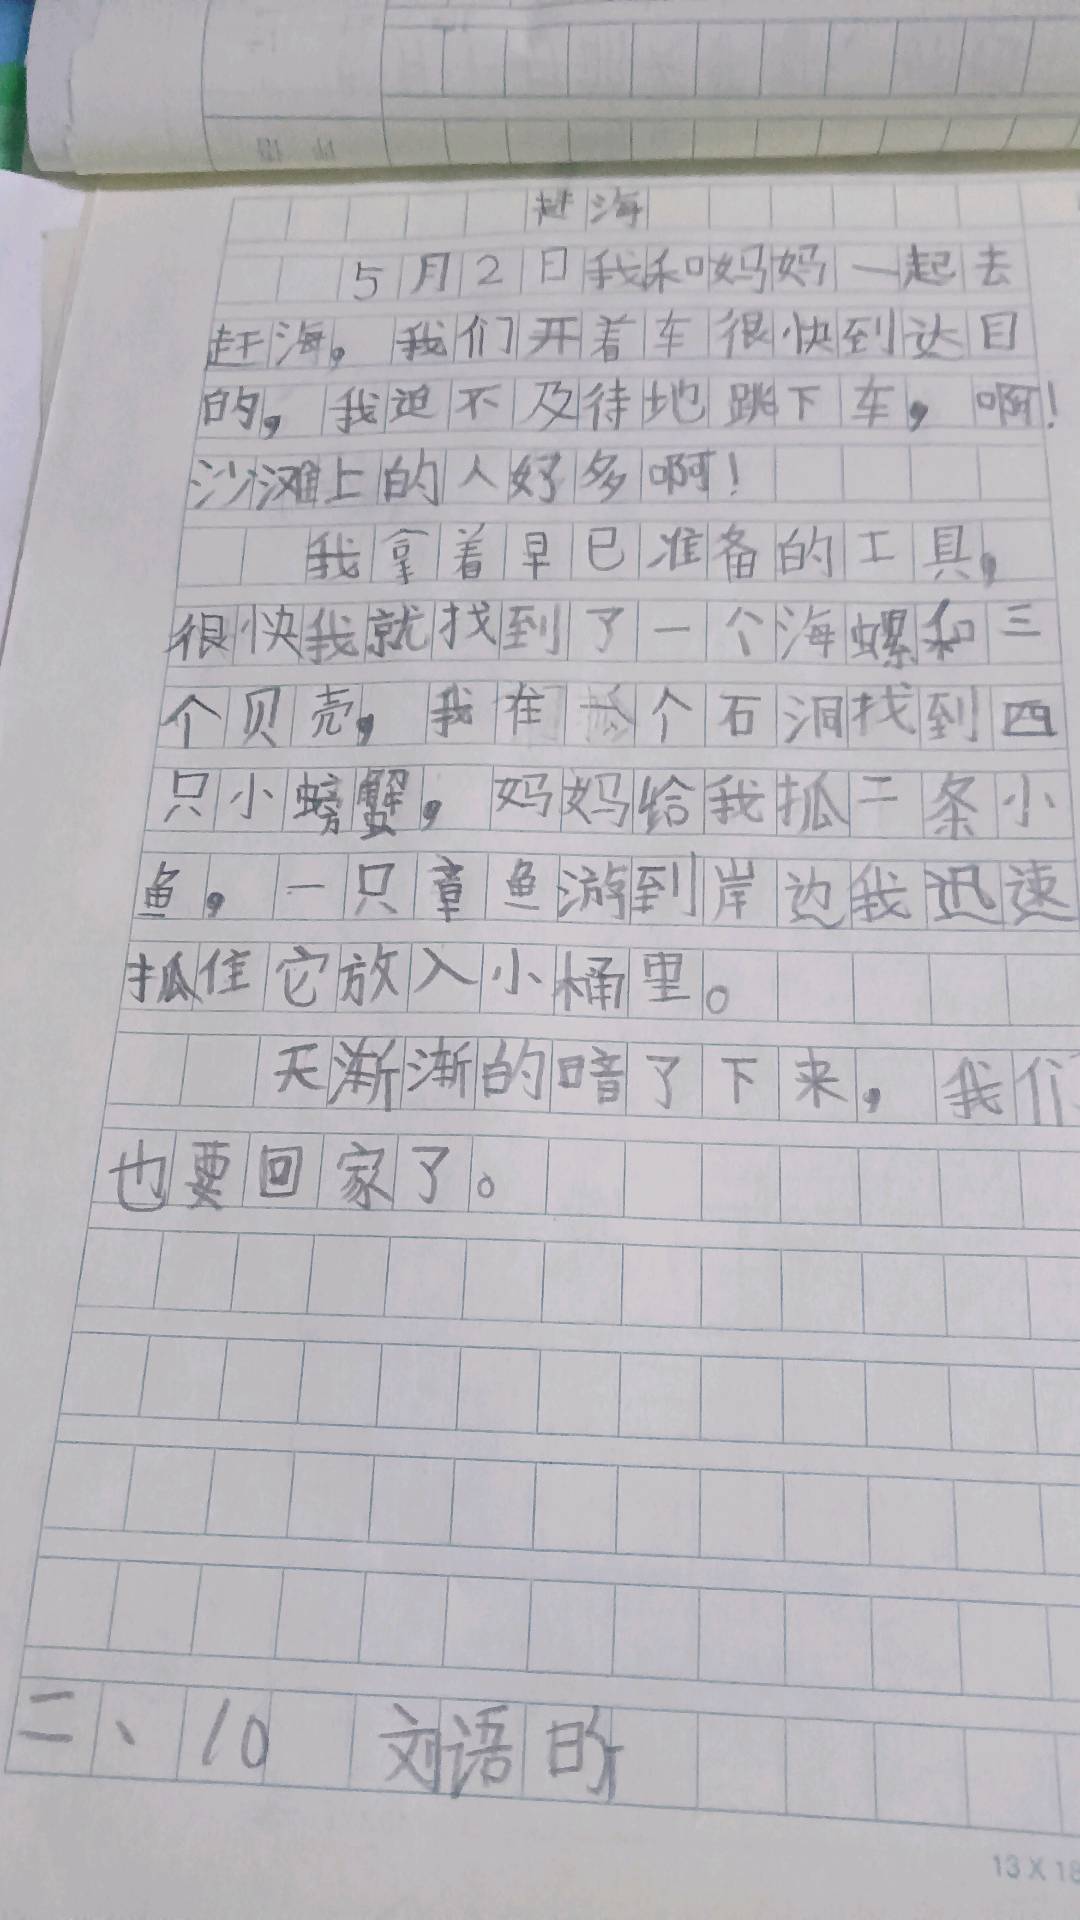 赶海
5月2日我和妈妈一起去
赶海，我们开着车很快到达目
的，我迫不及待地跳下车，啊！
沙滩上的人好多啊！
我拿着早已准备的工具，
很快我就找到了一个海螺和三
个贝壳，我在个石洞找到四
只小螃蟹，妈妈给我抓二条小
鱼，一只章鱼游到岸边我迅速
抓住它放入小桶里。
天渐渐的暗了下来，我们
也要回家了。
二、10 对语的
13×18